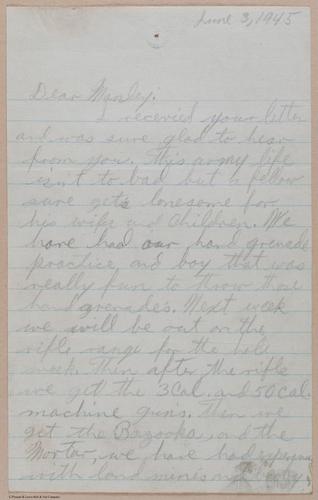 June 3, 1945
Dear Manley:
I recevied your letter
and was sure glad to hear
from you. This army life
isn't to bad but a fellow
sure gets lonesome for
his wife and Children. We
have had our hand grenade
practice, and boy that was
really fun to throw those
hand grenade's. Next week
we will be out on the
rifle range for the hole
week. Then after the rifle
we get the 3Cal. and 50Cal.
machine guns. Then we
get the Bazooka, and the
Mortar, we have had
with land mines and